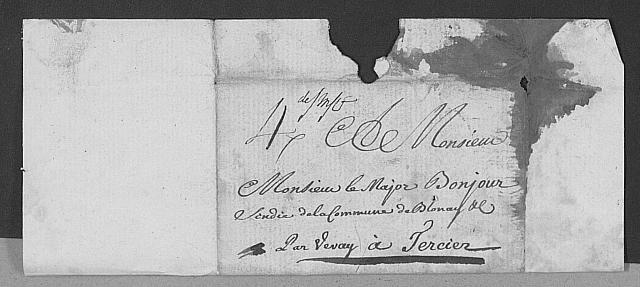 A Monsieur
Monsieur le Major Bonjour
Sindic de la Commune de Blonay &c
Par Vevay à Tercier